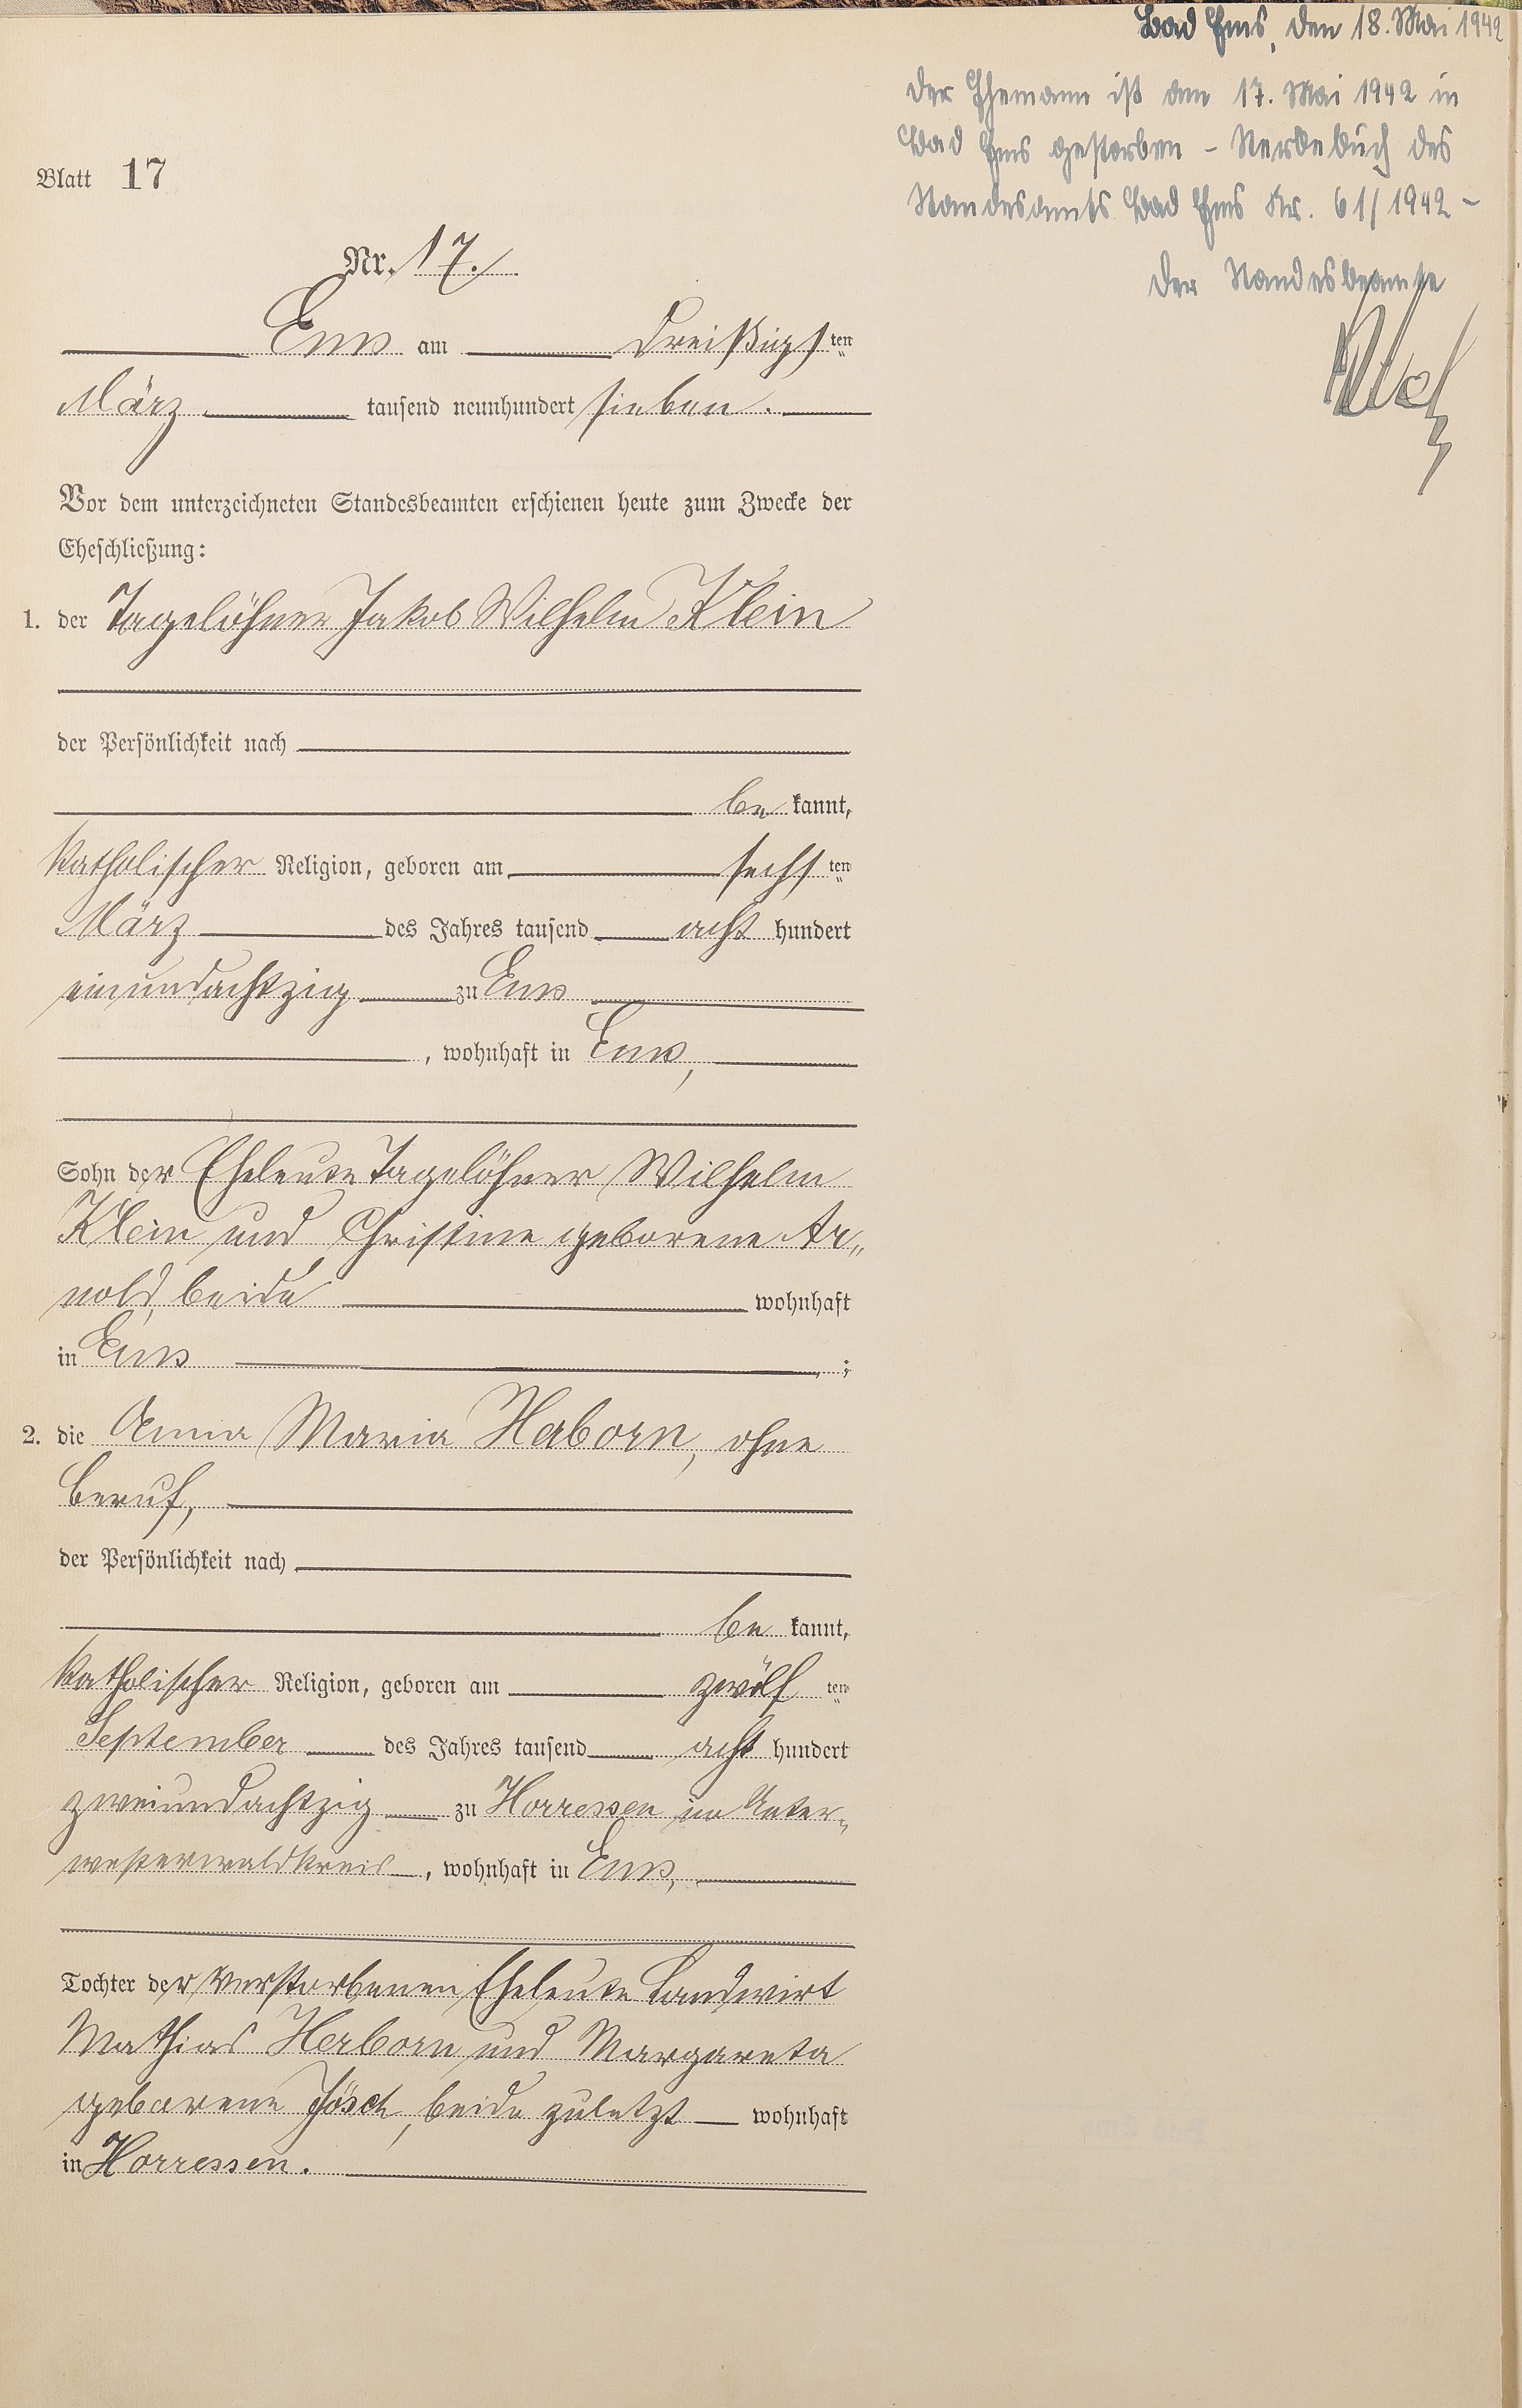 Bad Ems, den 18. Mai 1942
Der Ehemann ist am 17. Mai 1942 in
Bad Ems gestorben - Sterbebuch des
Standesamts Bad Ems Nr. 61/1942 -
Der Standesbeamte
Blatt 17
Nr. 17.
Ems am dreißigsten
März tausend neunhundert sieben.
Vor dem unterzeichneten Standesbeamten erschienen heute zum Zwecke der
Eheschließung:
1. der Tagelöhner Jakob Wilhelm Klein
der Persönlichkeit nach
be kannt,
katholischer Religion, geboren am sechsten
März des Jahres tausend acht hundert
einundachtzig zu Ems
, wohnhaft in Ems,
Sohn der Eheleute Tagelöhner Wilhelm
Klein und Christine geborene Ar„
nold, beide wohnhaft
in Ems ;
2. die Anna Maria Herborn, ohne
Beruf,
der Persönlichkeit nach
be kannt,
katholischer Religion, geboren am zwölf ten
September des Jahres tausend acht hundert
zweiundachtzig zu Horressen im Unter„
westerwaldkreis, wohnhaft in Ems,
Tochter der verstorbenen Eheleute Landwirt
Mathias Herborn und Margareta
geborene Jösch, beide zuletzt wohnhaft
in Horressen.